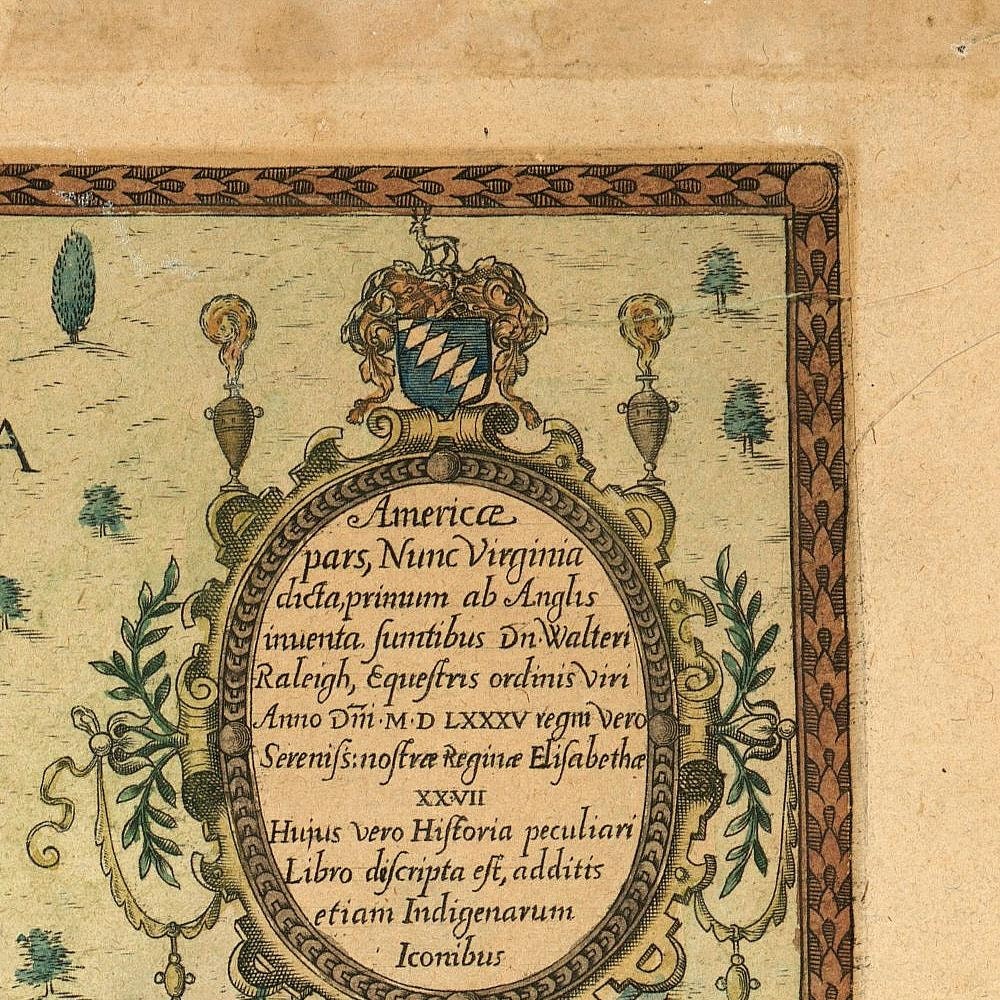 A
Americæ
pars, Nunc Virginia
dicta, primum ab Anglis
inuenta. ſumtibus Dn. Walteri
Raleigh, Equeſtris ordinis Viri
Anno Dn̄i. M.D LXXXV regni Vero
Sereniſs: noſtræ Reginæ Eliſabethæ
XXVII
Hujus vero Hiſtoria peculiari
Libro diſcripta eſt, additis
etiam Indigenarum
Iconibus